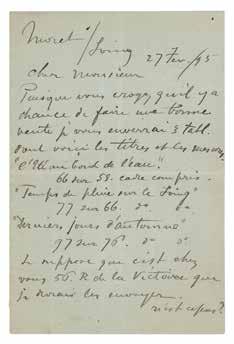 Moret s/Loing
27 Fev/95
Cher Monsieur
Puisque vous croyez qu'il y a
chance de faire une bonne
vente je vous enverrai 3 tabl.
dont voici les titres et les mesures
"l'Été au bord de l'eau"
66 sur 55. cadre compris.
"Temps de pluie sur le Loing"
77 sur 66. do do
"Derniers jours d'automne"
97 sur 76. do do
Je suppose que c'est chez
vous 56. R de la Victoire que
je devrai les envoyer.
n'est ce pas?